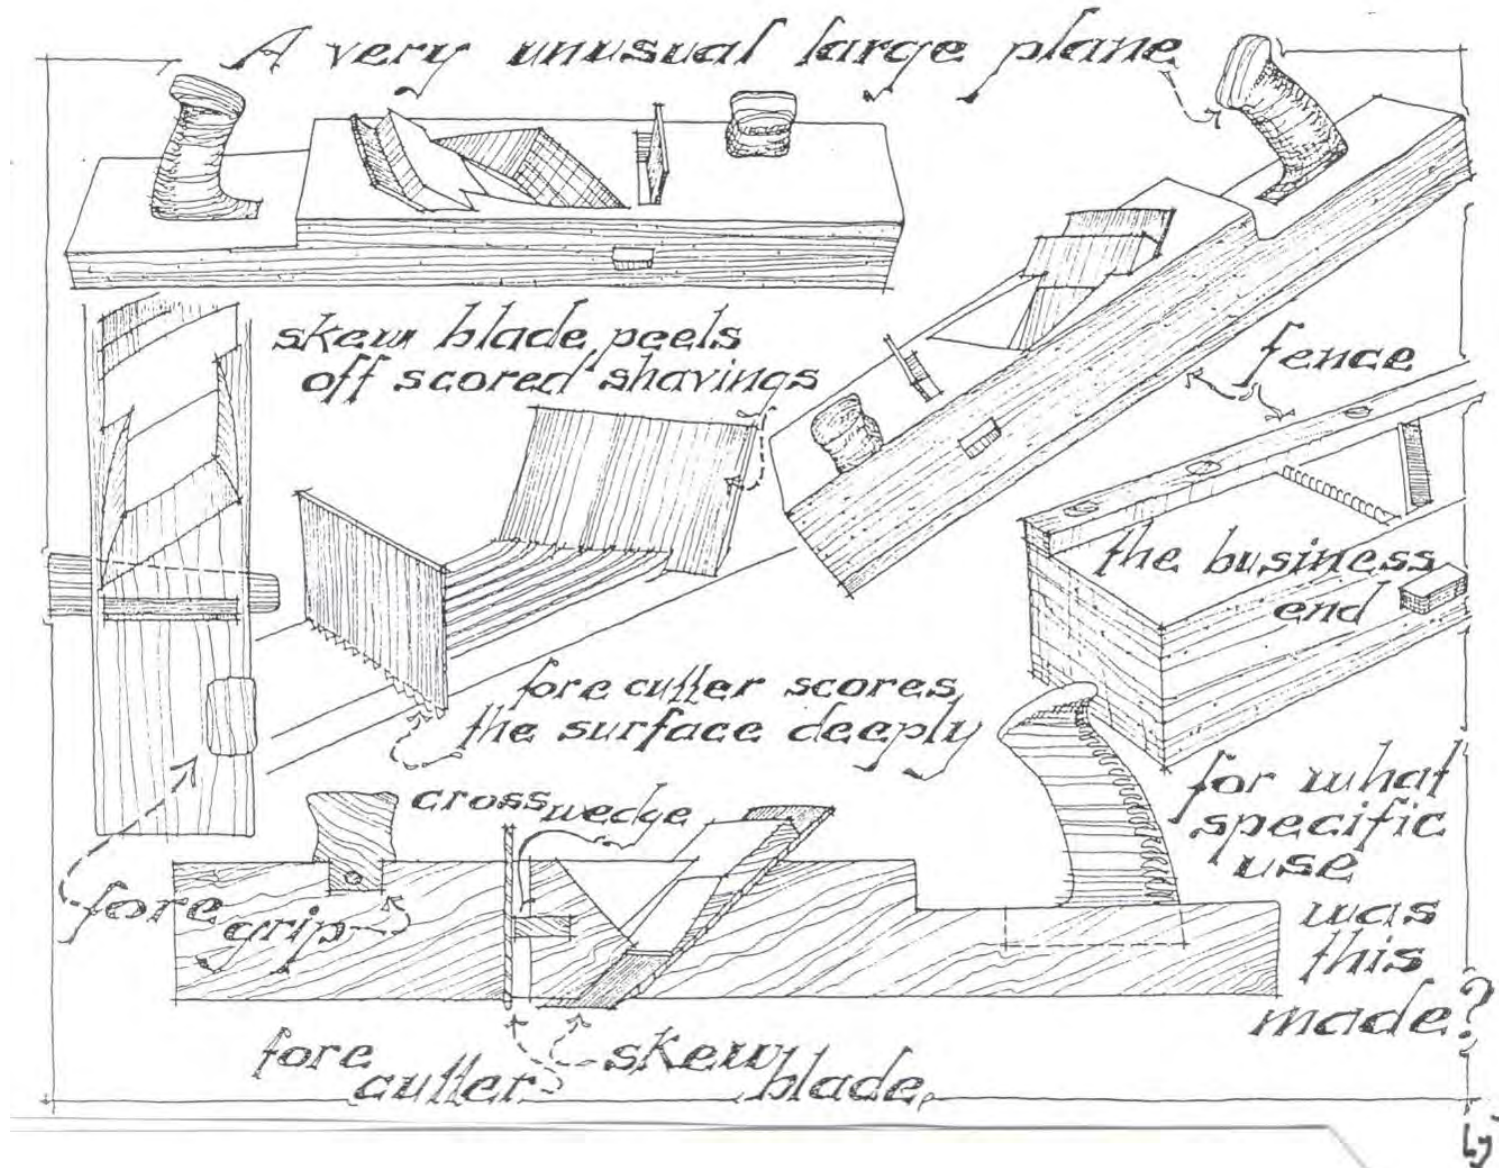 A very unusual large plane
skew blade peels
off scored shavings
fence
the business
end
fore cutter scores
the surface deeply
cross wedge
fore
grip
for what
specific
use
was
this
made?
fore
cutter
skew
blade